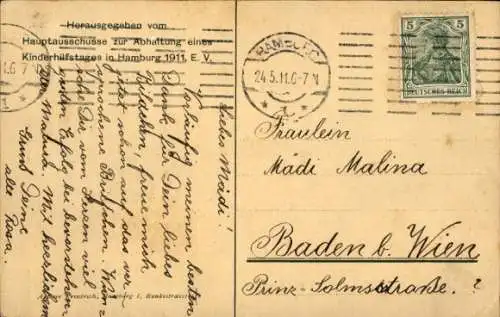 Herausgegeben vom
Hauptausschusse zur Abhaltung eines
Kinderhilfstages in Hamburg 1911, E. V.
Liebes Mädi!
Vorläufig meinen besten
Dank für Dein liebes
freue mich
jetzt schon auf das ver-
sprochene
sche Dir vom Herzen viel
Erfolg bei bevorstehen-
der Matura. Mit herzlichem
Gruss Deine
alte Rosa.
HAMBURG
24.5.11.6-7 N
1
5 5
DEUTSCHES REICH
Fräulein
Mädi Malina
Baden b. Wien
Prinz-Solmsstraße. ?
Hamburg 1,